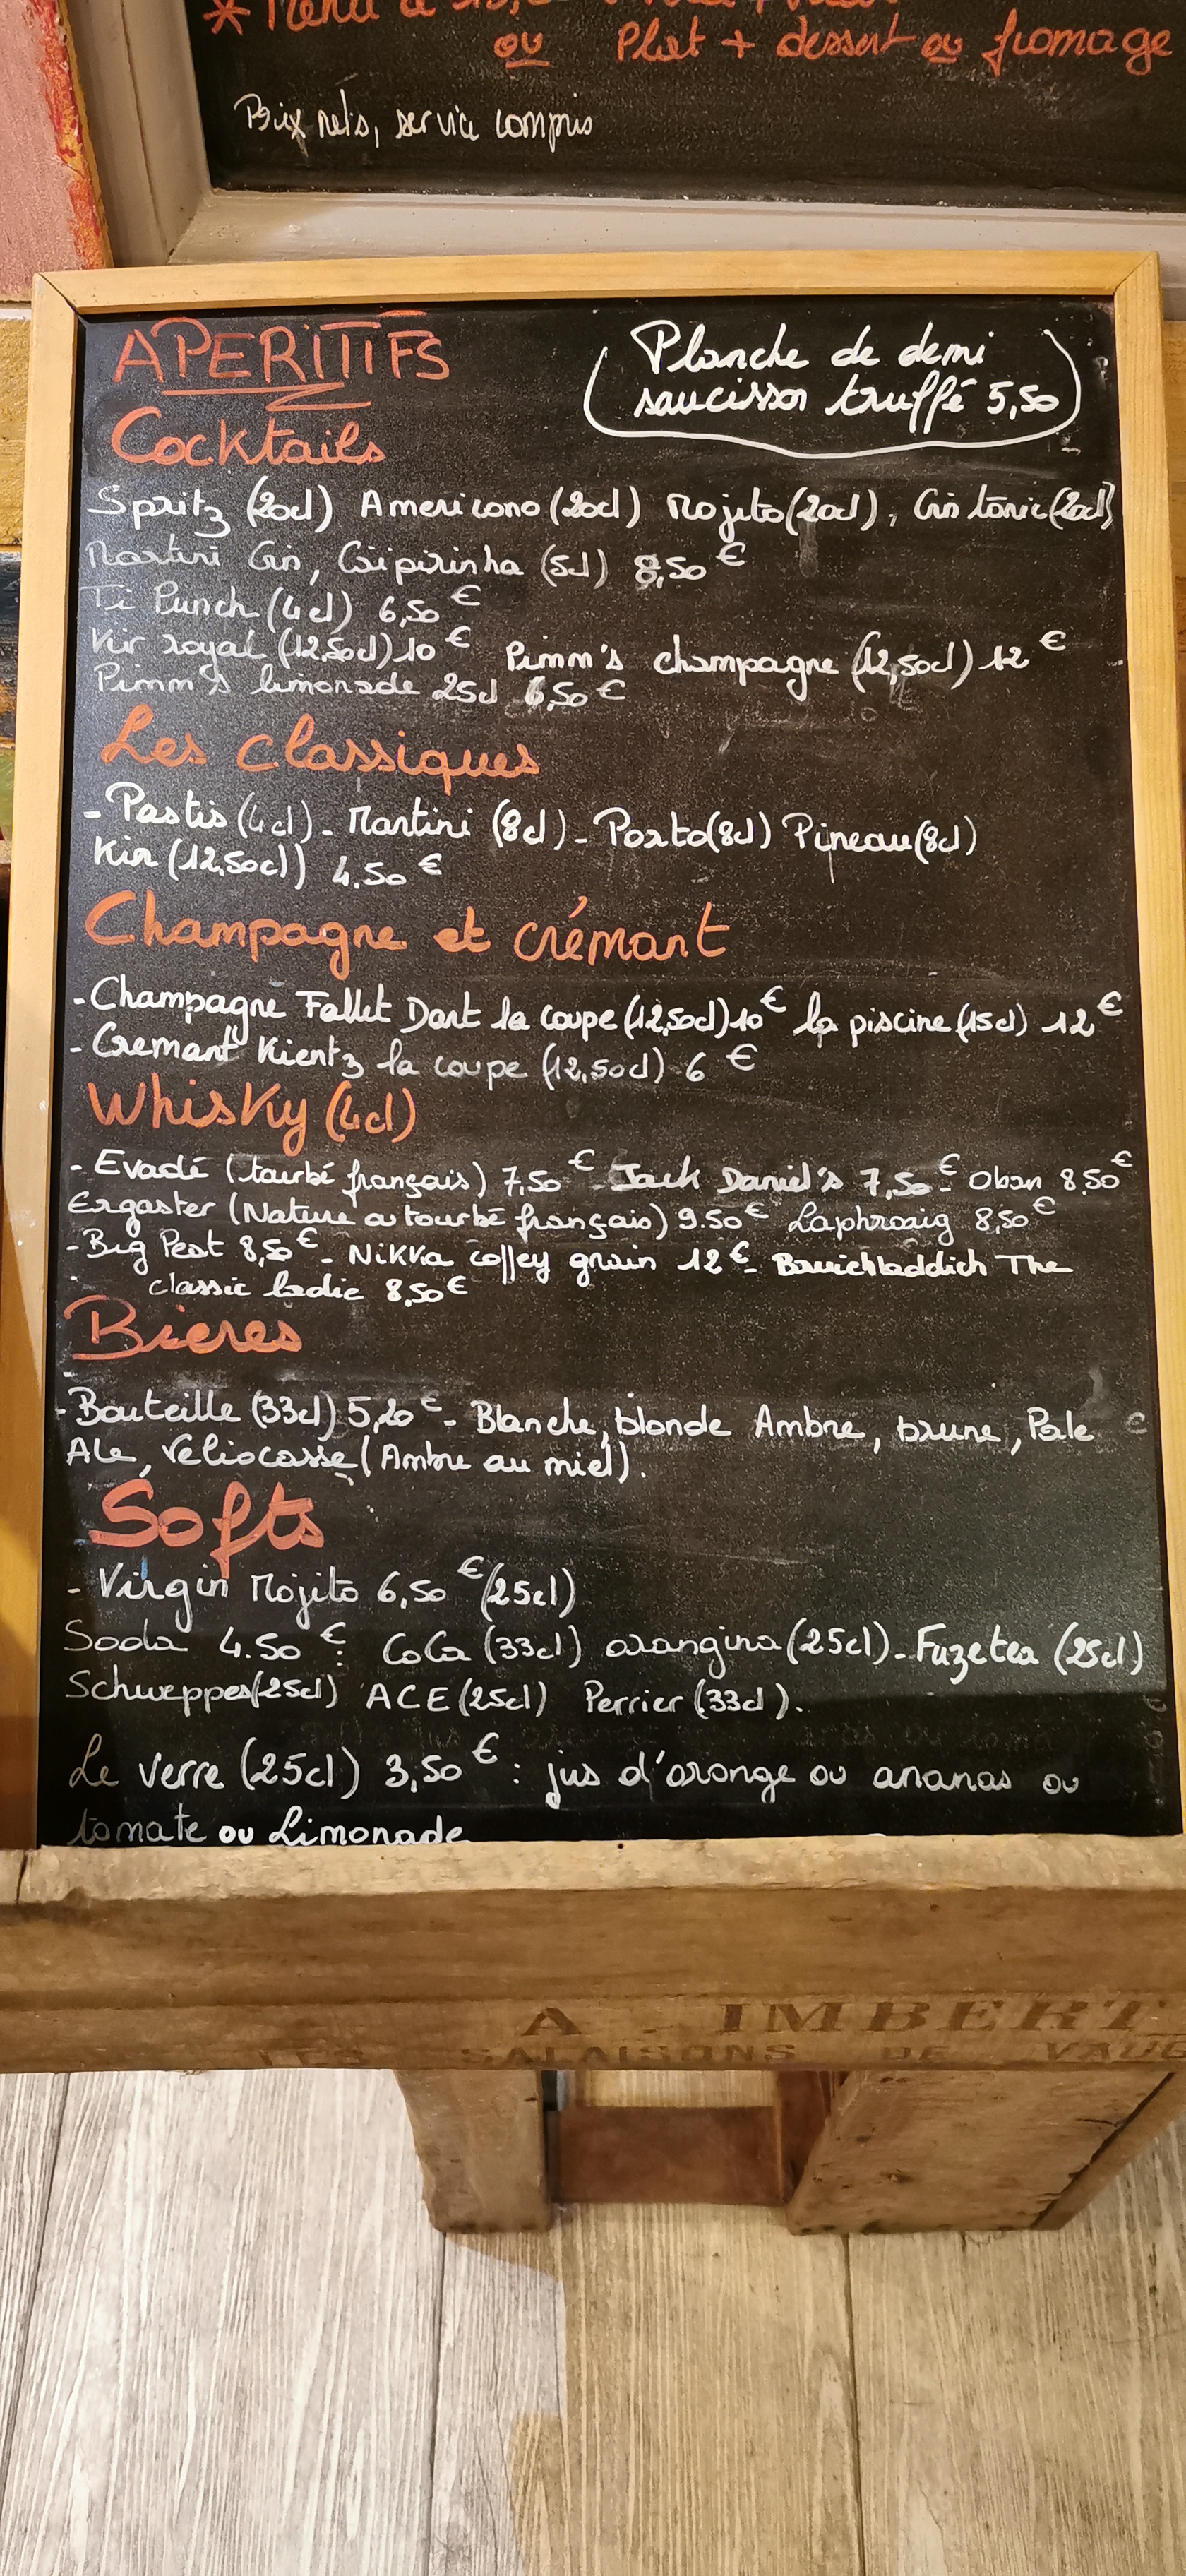 * Menu à
ou Plat + dessert ou fromage
Prix nets, service compris
APERITIFS
Planche de demi
saucisson truffé 5,50
Cocktails
Spritz (20cl) Americano (20cl) Mojito (20cl), Gin tonic (20cl)
Martini Gin, Caipirinha (5cl) 8,50 €
Ti Punch (4cl) 6,50 €
Kir royal (12,50cl) 10 € Pimm's champagne (12,50cl) 12 €
Pimm's limonade 25cl 6,50 €
Les classiques
- Pastis (4cl) - Martini (8cl) - Porto (8cl) Pineau (8cl)
Kir (12,50cl) 4,50 €
Champagne et crémant
- Champagne Fallet Dart la coupe (12,50cl) 10 € la piscine (15cl) 12 €
- Cremant Kientz la coupe (12,50cl) 6 €
Whisky (4cl)
- Evadé (tourbé français) 7,50 € - Jack Daniel's 7,50 € - Oban 8,50 €
Ergaster (Nature ou tourbé français) 9.50 € Laphroaig 8,50 €
- Big Peat 8,50 € - Nikka coffey grain 12 € - Bruichladdich The
classic ladie 8,50 €
Bieres
- Bouteille (33cl) 5,20 € - Blanche, blonde Ambre, brune, Pale
Ale, Veliocasse (Ambre au miel).
Softs
- Virgin Mojito 6,50 € (25cl)
Soda 4.50 € : CoCa (33cl) orangina (25cl) - Fuzetea (25cl)
Schweppes (25cl) ACE (25cl) Perrier (33cl).
Le verre (25cl) 3,50 € : jus d'orange ou ananas ou
tomate ou Limonade
A. IMBERT
LES SALAISONS DE